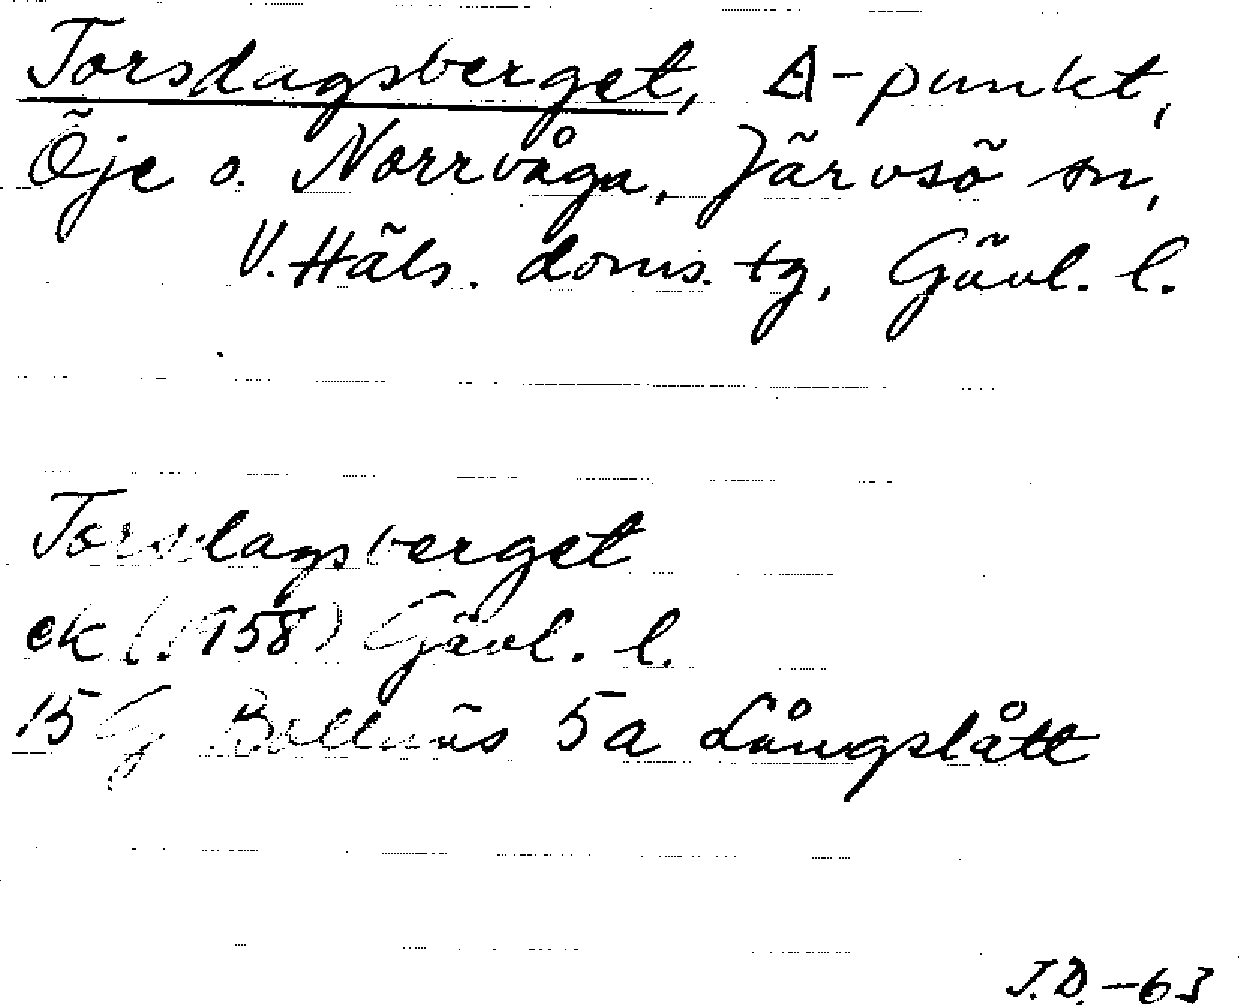 Torsdagsberget, Δ-punkt,
Öje o. Norrvåga, Järvsö sn,
V. Häls. doms. tg, Gävl. l.
Torsdagsberget
ek (1958) Gävl. l.
15 G Bollnäs 5a Långslått
J.D. -63